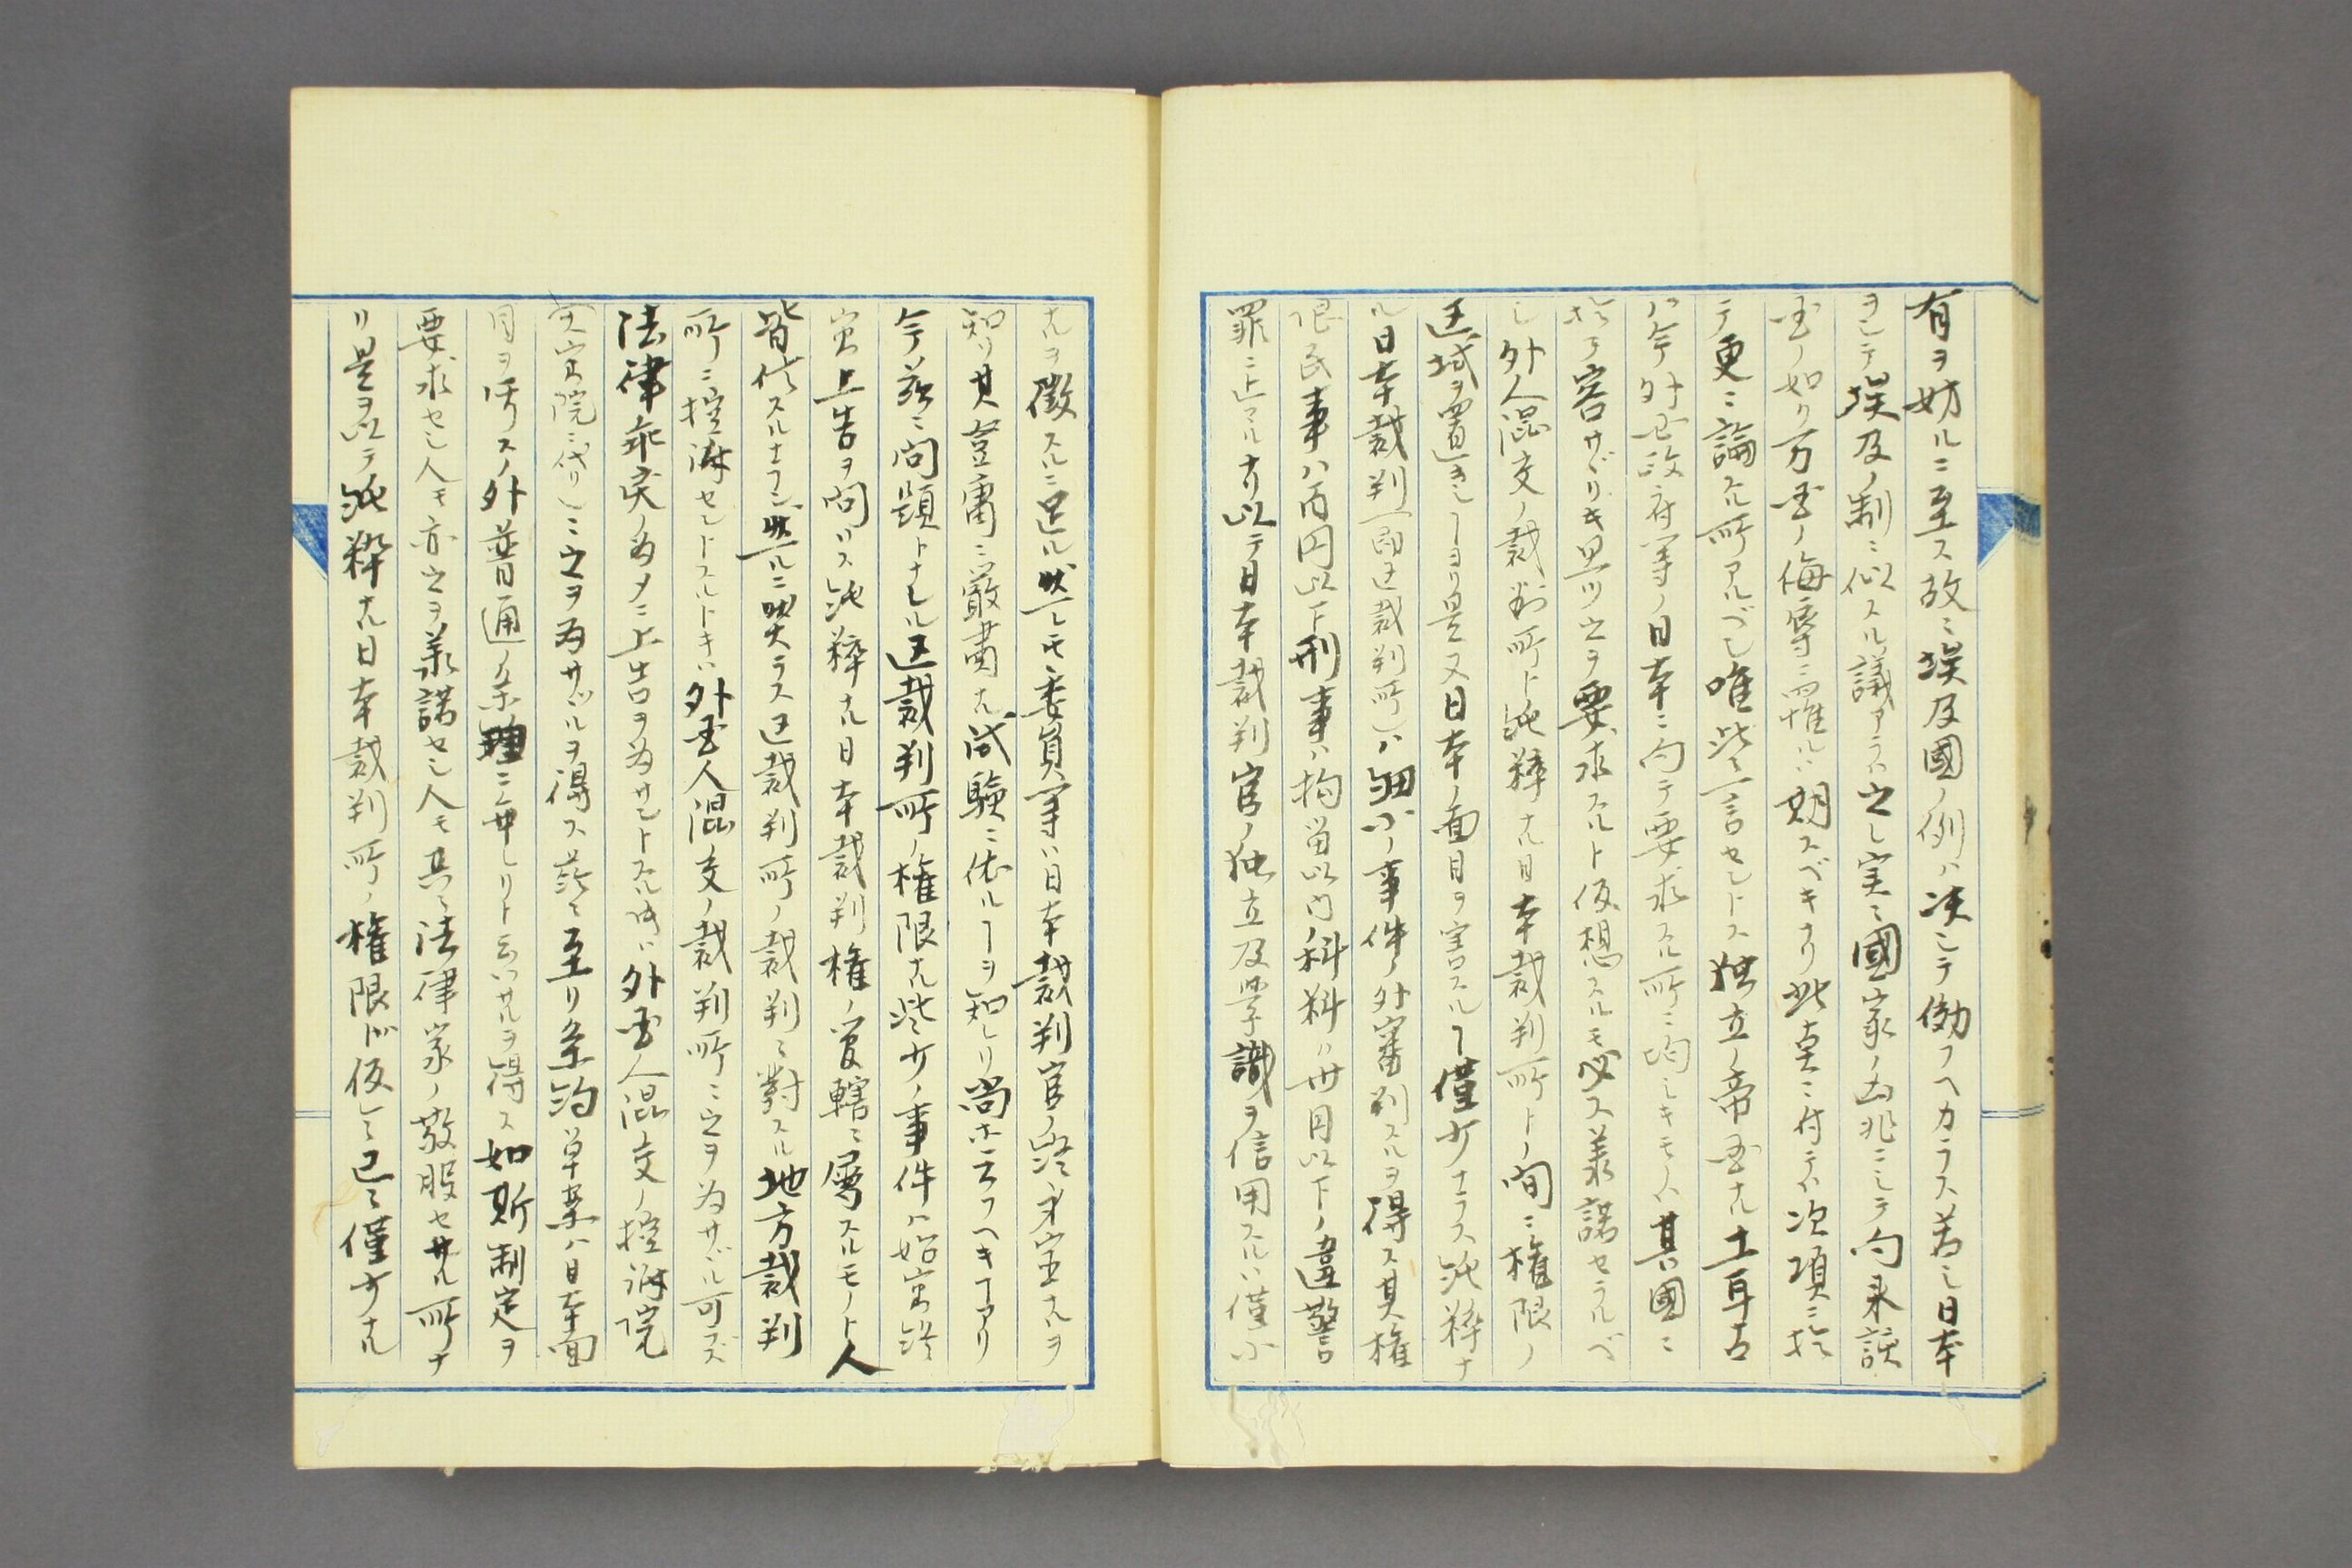 有ヲ妨ルニ至ス故ニ埃及國ノ例ハ决シテ傚フヘカラス若シ日本
ヲシテ埃及ノ制ニ似スル議アラハ之レ実ニ國家ノ凶兆ニシテ
国ノ如ク万国ノ侮辱ニ罹ルハ期スベキナリ此章ニ付テハ次項ニ於
テ更ニ論スル所アルベシ唯茲ニ一言セントス独立ノ帝国ナル土耳古
ハ今外国政府等ノ日本ニ向テ要求スル所ニ均シキモノハ其國ニ
於テ容サヾリキ思ツ之ヲ要求スルト仮想スルモ必ス承諾セラルベ
シ外人混交ノ裁判所ト純粋ナル日本裁判所トノ間ニ権限ノ
区域ヲ置きシヿヨリ是又日本ノ面目ヲ害スルヿ僅少ナラス純粋ナ
ル日本裁判(即区裁判所)ハ細小ノ事件ノ外審判スルヲ得ス其権
限民事ハ百円以下刑事ハ拘留以内ノ科料ハ廿円以下ノ違警
罪ニ止マルナリ以テ日本裁判官ノ独立及学識ヲ信用スルハ僅小
ナルヲ徴スルニ足ル然レモ委員等ハ日本裁判官ノ
知リ其登庸ニ厳粛ナル試験ニ依ルヿヲ知レリ尚ホ云フヘキヿアリ
今茲ニ問題トナレル区裁判所ノ権限ナル些少ノ事件ハ始審終
審上告ヲ問ハス純粋ナル日本裁判権ノ管轄ニ属スルモノト人
皆信スルナラン然ルニ然ラス区裁判所ノ裁判ニ對スル地方裁判
所ニ控訴セントスルトキハ外国人混交ノ裁判所ニ之ヲ為サヾル可ラズ
法律乖戻ノ為メニ上告ヲ為サントスル時ハ外国人混交ノ控訴院
(大審院ニ代リ)ニ之ヲ為サヾルヲ得ス茲ニ至リ条約草案ハ日本面
目ヲ汚スノ外普通ノ条理ニ悖レリト云ハサルヲ得ス如斯制定ヲ
要求セシ人モ亦之ヲ承諾セシ人モ共ニ法律家ノ敬服セサル所ナ
リ是ヲ以テ純粋ナル日本裁判所ノ権限ハ仮令已ニ僅少ナル